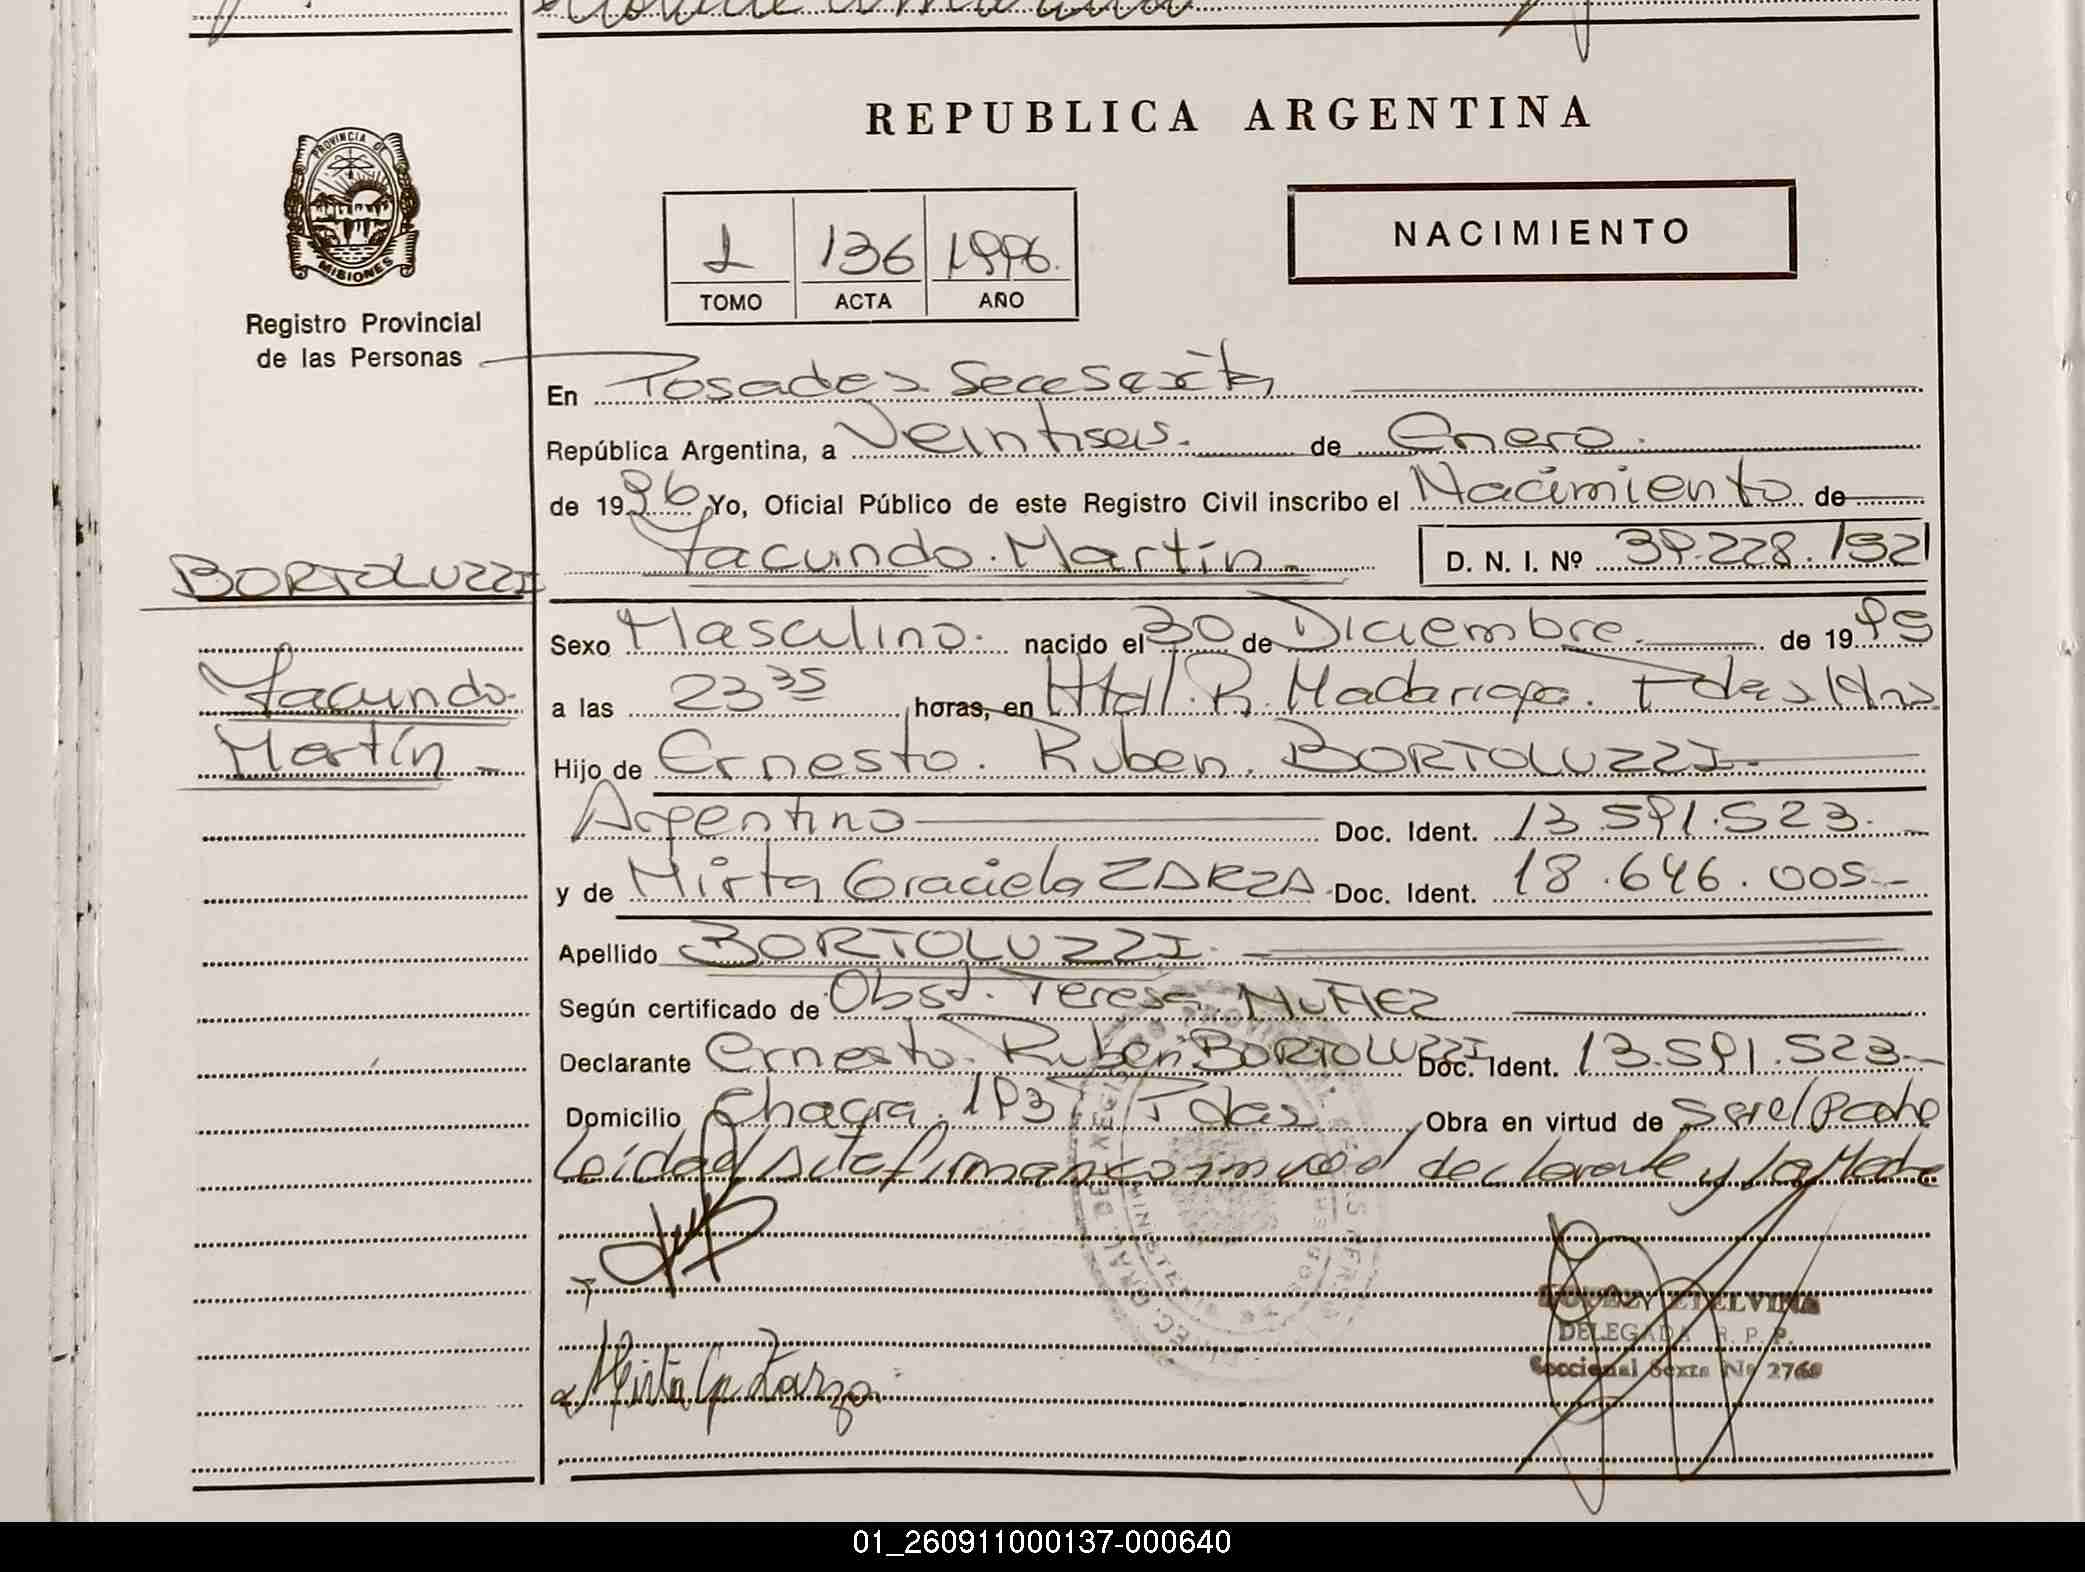 REPUBLICA ARGENTINA
PROVINCIA DE
MISIONES
Registro Provincial
de las Personas
1 136 1996.
TOMO ACTA AÑO
NACIMIENTO
En Posadas Secc Sexta
República Argentina, a Veintiseis. de Enero.
de 1996 Yo, Oficial Público de este Registro Civil inscribo el Nacimiento de
Facundo Martín. D. N. I. Nº 39.228.192
BORTOLUZZI
Facundo
Martín
Sexo Masculino. nacido el 30 de Diciembre. de 1995
a las 23 35 horas, en Htal. R. Madariaga. Pdas Mns
Hijo de Ernesto Ruben BORTOLUZZI
Argentino Doc. Ident. 13.591.523.
y de Mirta Graciela ZARZA Doc. Ident. 18.646.005
Apellido BORTOLUZZI
Según certificado de Obst. Teresa NUÑEZ
Declarante Ernesto Ruben BORTOLUZZI Doc. Ident. 13.591.523
Domicilio Chacra 193 Pdas Obra en virtud de Ser el Padre
Leída el Acta firman conmigo el declarante y la Madre
Mirta G Zarza
ETELVINA
DELEGADA R. P. P.
Seccional Sexta Nº 2760
01_260911000137-000640